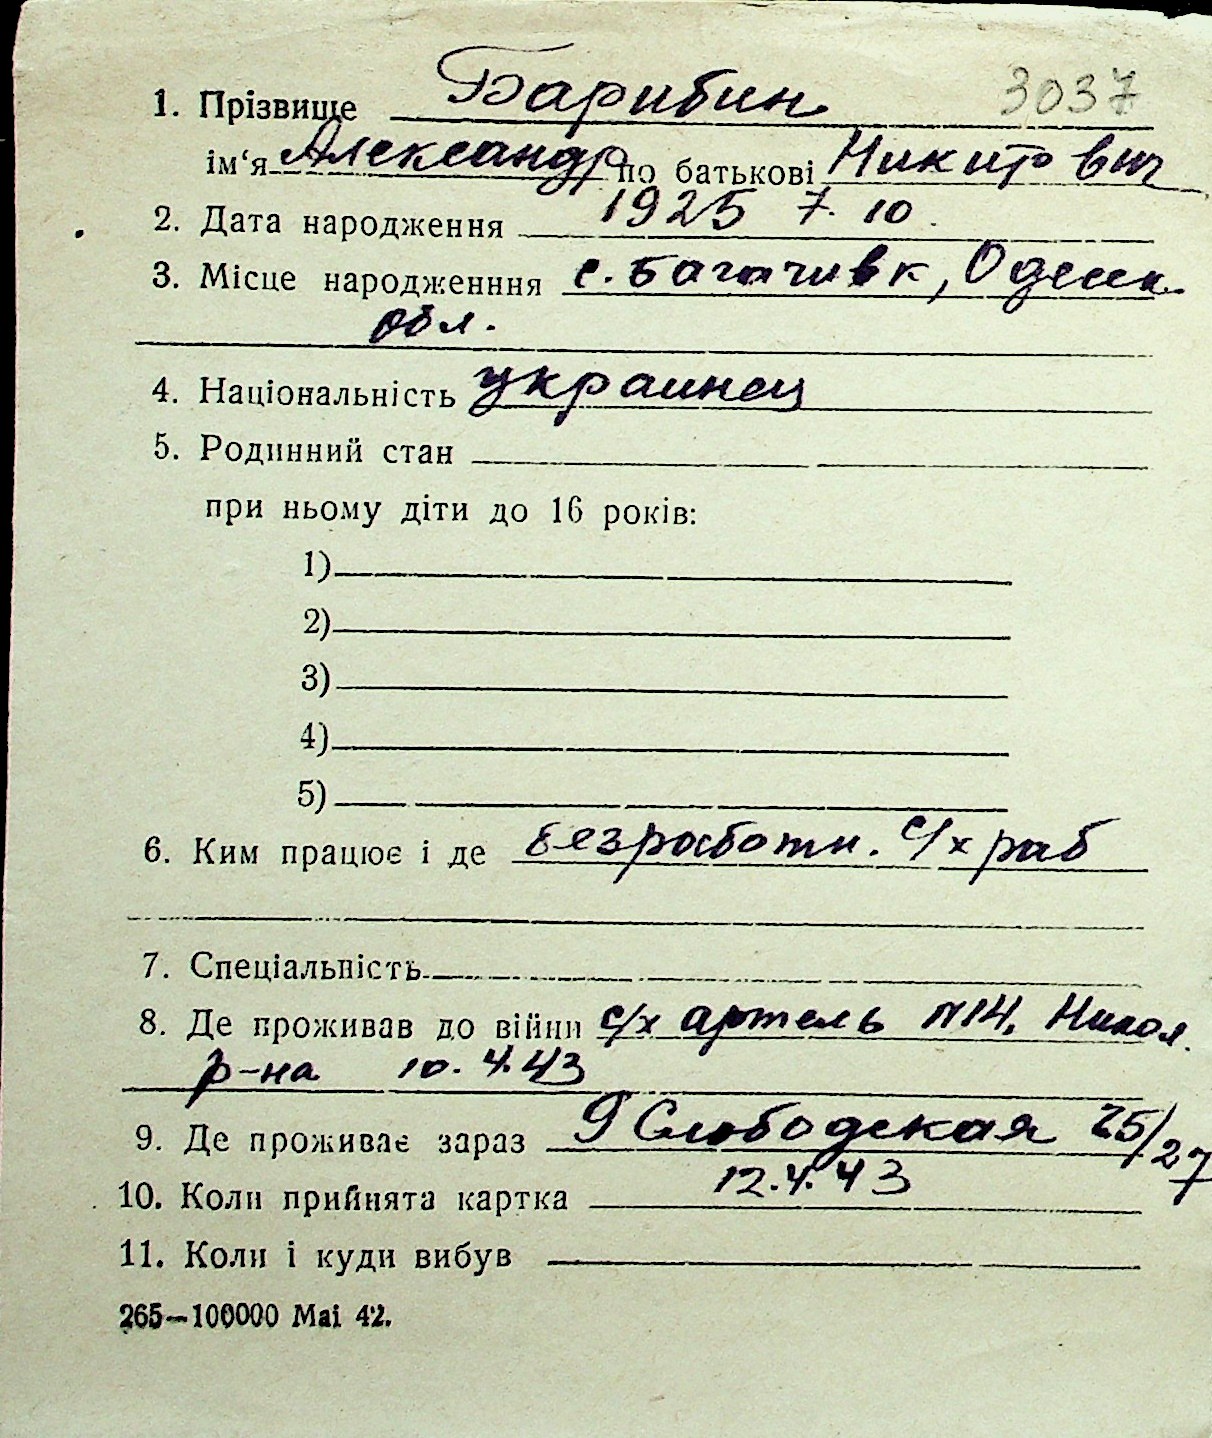 1. Прізвище Барибин 3037
ім‘я Александр по батькові Никитович
2. Дата народження 1925 7. 10.
3. Місце народженння с. Багачивк, Одесск.
обл.
4. Національність украинец
5. Родинний стан
при ньому діти до 16 років:
1)
2)
3)
4)
5)
6. Ким працює і де безработн. с/х раб
7. Спеціальність
8. Де проживав до війни с/х артель №14, Никол.
р-на 10. 4. 43
9. Де проживає зараз 9 Слободская 25/27
10. Коли прийнята картка 12. 4. 43
11. Коли і куди вибув
265—100000 Mai 42.